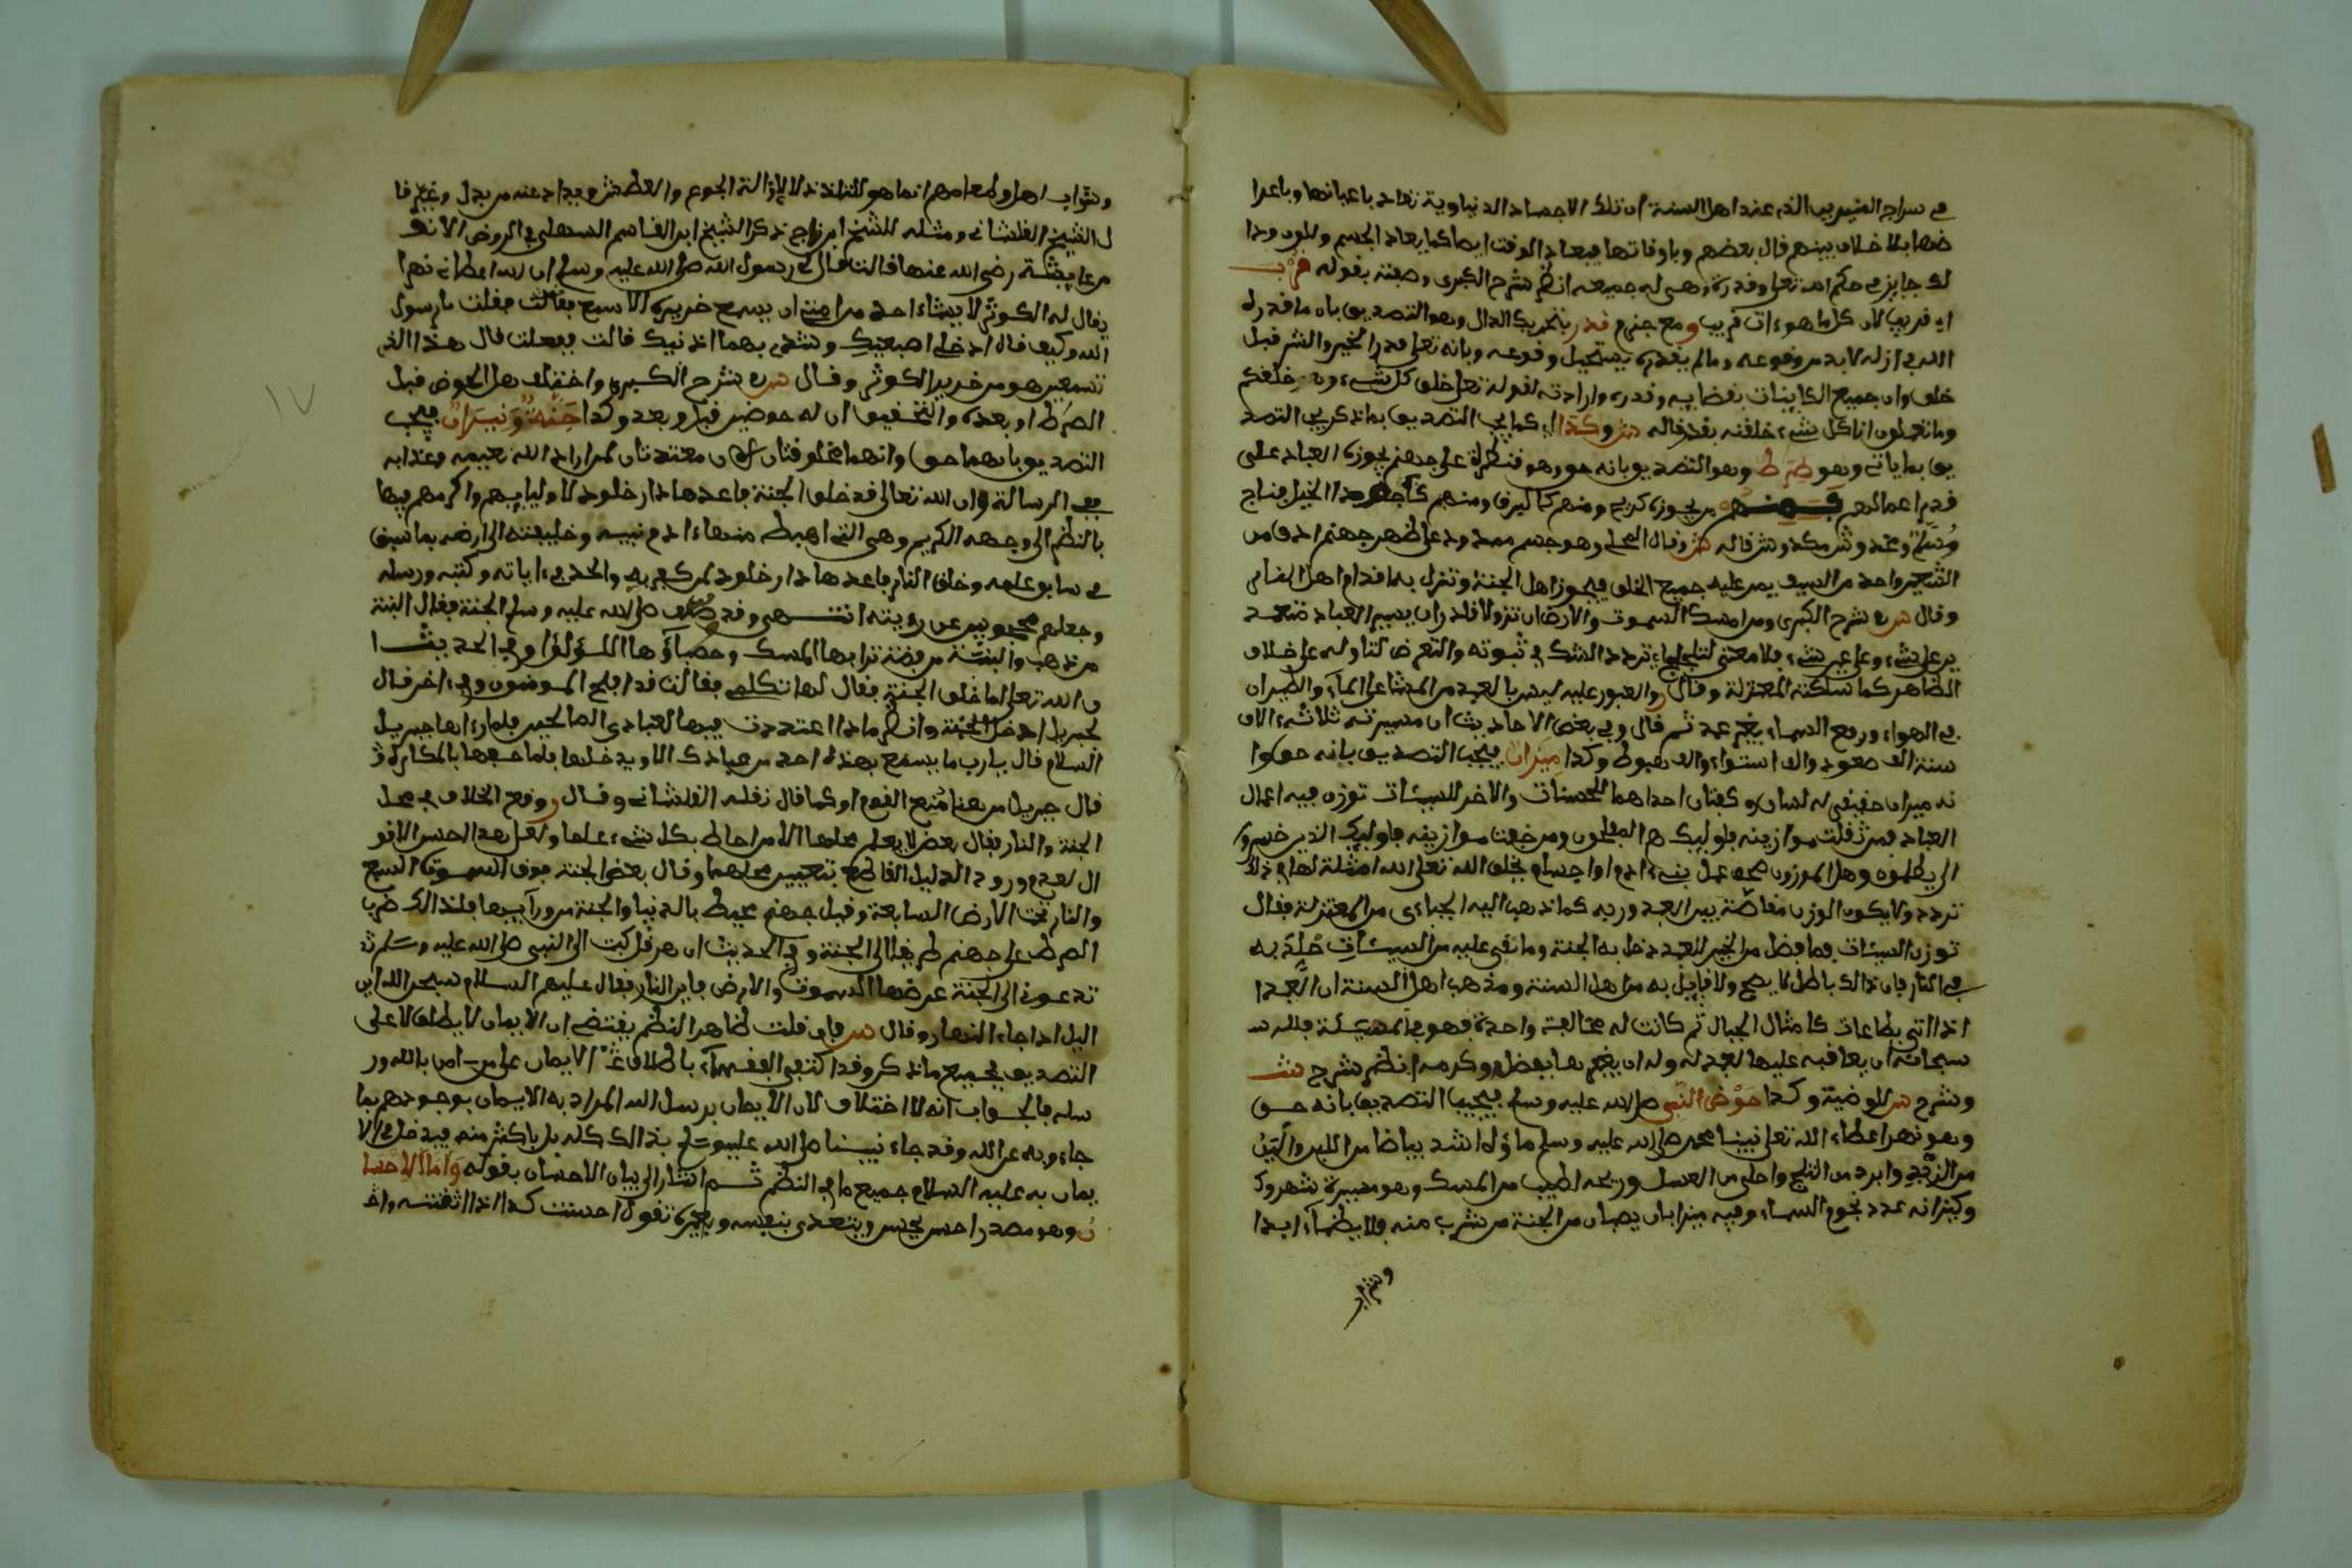 في سراج المريدين الذي عند اهل السنة ان تلك الاجساد الدنياوية تعاد باعيانها وباعرا
ضها بلا خلاف بينهم قال بعضهم وباوقاتها فيعاد الوقت ايضا كما يعاد الجسم واللون وذا
لك جايز في حكم الله تعلى وقدرته وهين له جميعه انظر شرح الكبرى وصفته بقوله قرب
اي قريب لان كل ما هو ءات قريب ومع جزم قدر بتحريك الدال وهو التصديق بان ما قدره
الله في ازله لا بد من وقوعه وما لم يقدره يستحيل وقوعه وبانه تعلى قدر الخير والشر قبل
خلق وان جميع الكاينات بقضايه وقدره وارادته لقوله تعلى خلق كل شيء وخلقكم
وما تعملون انا كل شيء خلقنه بقدر قاله وكذا اي كما يجب التصديق بما ذكر يجب التصد
يق بما ياتي وهو صرط وهو التصديق بانه حق وهو قنطرة على جهنم يجوزه العباد على
قدر اعمالهم فمنهم من يجوزه كريح ومنهم كالبرق ومنهم كاجاود الخيل فناج
مسلم ومخدوش ومكدوش قاله وقال المحلي وهو جسم ممدود على ظهر جهنم ادق من
الشعر واحد من السيف يمر عليه جميع الخلق فيجوزه اهل الجنة وتزل به اقدام اهل النار
وقال في شرح الكبرى ومن امسك السموت والارض ان تزولا قادر ان يسير العباد ضعد
ير على شيء وعلى غير شيء فلا معنى لتردد الشك في ثبوته والتعرض لتاويله على خلاف
الظاهر كما سلكته المعتزلة وقال والعبور عليه ليس بابعد من المشي على الماء والطيران
في الهواء ورفع السماء بغير عمد ثم قال وفي بعض الاحاديث ان مسيرته ثلاثة ءالاف
سنة الف صعود والف استواء والف هبوط وكذا ميزان فيجب التصديق بانه حق وا
نه ميزان حقيقي له لسان وكفتان احداهما للحسنات والاخر للسيئات توزن فيه اعمال
العباد فمن ثقلت موازينه فاوليك هم المفلحون ومن خفت موازينه فاوليك الذين خسروا
الى يظلمون وهل الموزون صحف عمل بني ءادم او اجسام يخلق الله تعلى الله امثلة لها في ذلك
تردد ولا يكون الوزن مقاصة بين العبد وربه كما ذهب اليه الجباءى من المعتزلة فقال
توزن السيئات فما فضل من الخير للعبد دخل به الجنة وما بقي عليه من السيئات خلد به
في النار فان ذالك باطل لا يصح ولا قايل به من اهل السنة ومذهب اهل السنة ان العبد ا
اذا اتى بطاعات كامثال الجبال ثم كانت له مخالفة واحدة فهو في المشيئة فلله
سبحانه ان يعاقبه عليها بعدله وله ان يغفرها بفضله وكرمه انظر شرح
وشرح الوضية وكذا حوض النبي صلى الله عليه وسلم فيجب التصديق بانه حق
وهو نهر اعطاه الله تعلى نبينا محمد صلى الله عليه وسلم ماؤه اشد بياضا من اللبن والين
من الزبد وابرد من الثلج واحلى من العسل وريحه اطيب من المسك وهو مسيرة شهر وك
وكيزانه عدد نجوم السماء وفيه ميزابان يصبان من الجنة من شرب منه فلا يظما ابدا
وشراب
وشراب اهلها وطعامهم انما هو للتلذذ لا لازالة الجوع والعطش ويذاد عنه من بدل وغير قا
ل الشيخ القلشاني ومثله للشيخ ابن ناجي ذكر الشيخ ابو القاسم السهيلي في الروض الانف
من عايشة رضي الله عنها قالت قال لي رسول الله صلى الله عليه وسلم ان الله اعطاني نهرا
يقال له الكوثر لا يشاء احد من امتي ان يسمع خريره الا سمع فقالت فقلت يا رسول
الله وكيف قال ادخلي اصبعيك وشدي بهما اذنيك قالت ففعلت قال هذا الذي
تسمعين هو من خرير الكوثر وقال في شرح الكبرى واختلف هل الحوض قبل
الصرط او بعده والتحقيق ان له حوضين قبل وبعد وكذا جنة ونيران فيجب
التصديق بانهما حق وانهما مخلوقتان الان معتدتان لمن اراد الله نعيمه وعذابه
ففي الرسالة وان الله تعالى قد خلق الجنة فاعدها دار خلود لاوليايه واكرمهم فيها
بالنظر الى وجهه الكريم وهي التي اهبط منها ءادم نبيه وخليفته الى ارضه بما سبق
في سابق علمه وخلق النار فاعدها دار خلود لمن كفر به والحد في ءاياته وكتبه ورسله
وجعلهم محجوبين عن رؤيته انتهى وقد وصف صلى الله عليه وسلم الجنة فقال البنة
من ذهب والبنة من فضة ترابها المسك وحصباؤها اللؤلؤ وفي الحديث ا
ن الله تعلى لما خلق الجنة فقال لها تكلمي فقالت قد افلح المومنون وفي ءاخر قال
لجبريل ادخل الجنة وانظر ماذا اعتددت فيها لعبادي الصالحين فلما رءاها جبريل
السلام قال يا رب ما يسمع بهذه احد من عبادك الا ويدخلها فلما حفها بالمكاره
قال جبريل من هنا منع القوم او كما قال نقله القلشاني وقال ووقع الخلاف في محل
الجنة والنار فقال بعض لا يعلم محلها الا من احاط بكل شيء علما ولعل هذا احسن الاقو
ال لعدم ورود الدليل القاطع بتعيين محلهما وقال بعض الجنة فوق السموت السبع
والنار تحت الارض السابعة وقيل جهنم محيط بالدنيا والجنة من ورآيها فلذالك ضرب
الصرط على جهنم طريقا الى الجنة وفي الحديث ان هرقل كتب الى النبي صلى الله عليه وسلم
تدعوني الى الجنة عرضها السموت والارض فاين النار فقال عليهم السلام سبحن الله اين
اليل اذا جاء النهار وقال فان قلت ظاهر النظم يقتضي ان الايمان لا يطلق الا على
التصديق بجميع ما ذكر وقد اكتفى الفقهاء باطلاق الايمان على من امن بالله ور
سله فالجواب انه لا اختلاف لان الايمان برسل الله المراد به الايمان بوجودهم بما
جاءو به عن الله وقد جاء نبينا صلى الله عليه وسلم بذالك كله بل باكثر منه فيدخل في الا
يمان به عليه السلام جميع ما في النظم ثم اشار الى بيان الاحسان بقوله واما الاحسا
ن وهو مصدر احسن يحسن ويتعدى بنفسه وبغيره تقول احسنت كذا اذا اتقنته واذ
١٧